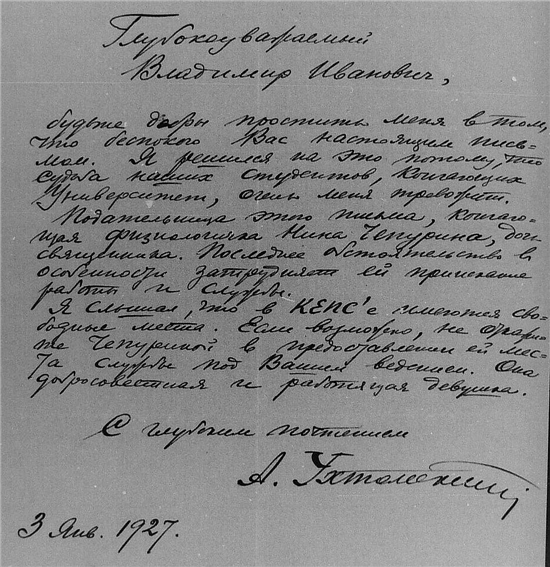 Глубокоуважаемый
Владимир Иванович,
будьте добры простить меня в том,
что беспокою Вас настоящим пись-
мом. Я решился на это потому, что
судьба наших студентов, кончающих
Университет, очень меня тревожит.
Подательница этого письма, кончаю-
щая физиологичка Нина Чепурина, дочь
священника. Последнее обстоятельство в
особенности затрудняет ей приискание
работы и службы.
Я слышал, что в КЕПС'е имеются сво-
бодные места. Если возможно, не откажи-
те Чепуриной в предоставлении ей мес-
та службы под Вашим ведением. Она
добросовестная и работящая девушка.
С глубоким почтением
А. Ухтомский
3 Янв. 1927.